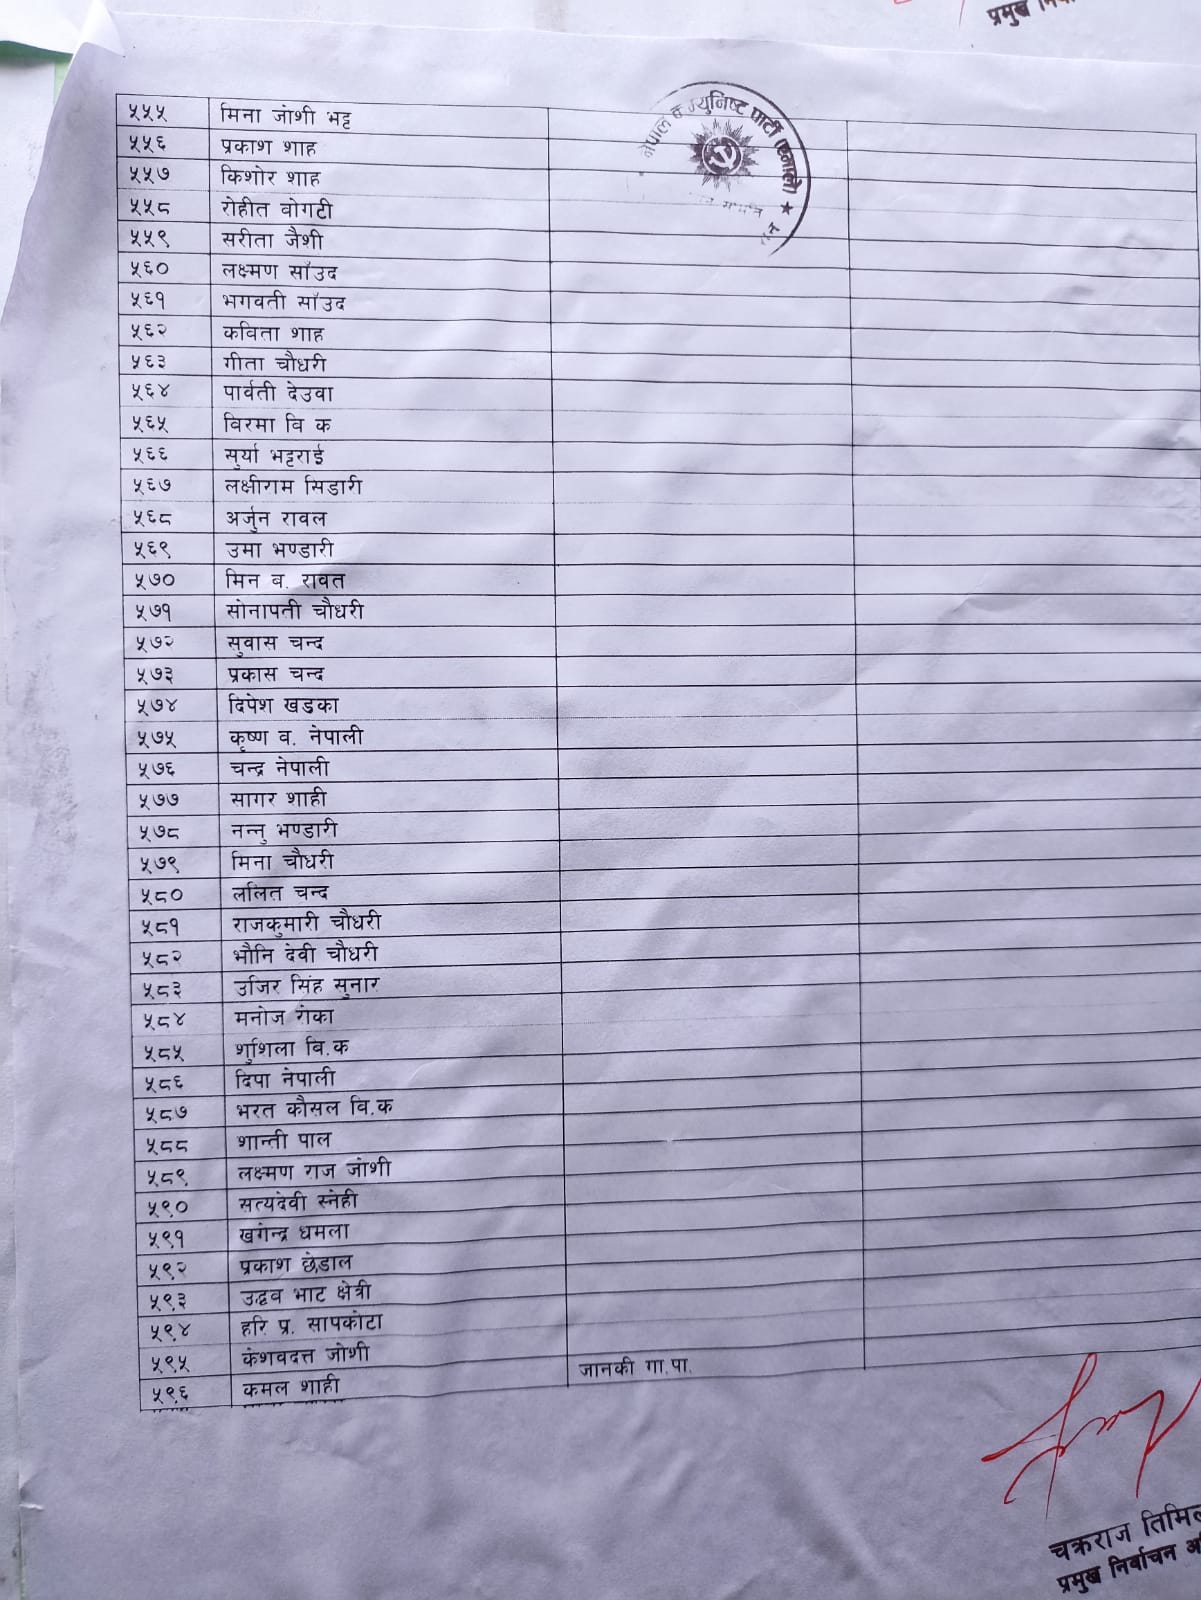 प्रमुख
नेपाल कम्युनिष्ट पार्टी (एमाले)
५५५ मिना जोशी भट्ट
५५६ प्रकाश शाह
५५७ किशोर शाह
५५८ रोहीत बोगटी
५५९ सरीता जैशी
५६० लक्ष्मण साँउद
५६१ भगवती साँउद
५६२ कविता शाह
५६३ गीता चौधरी
५६४ पार्वती देउवा
५६५ विरमा वि क
५६६ सुर्या भट्टराई
५६७ लक्षीराम सिडारी
५६८ अर्जुन रावल
५६९ उमा भण्डारी
५७० मिन ब. रावत
५७१ सोनापती चौधरी
५७२ सुवास चन्द
५७३ प्रकास चन्द
५७४ दिपेश खडका
५७५ कृष्ण व. नेपाली
५७६ चन्द्र नेपाली
५७७ सागर शाही
५७८ नन्नु भण्डारी
५७९ मिना चौधरी
५८० ललित चन्द
५८१ राजकुमारी चौधरी
५८२ भौनि देवी चौधरी
५८३ उजिर सिंह सुनार
५८४ मनोज रोका
५८५ शुशिला वि.क
५८६ दिपा नेपाली
५८७ भरत कौसल वि.क
५८८ शान्ती पाल
५८९ लक्ष्मण राज जोशी
५९० सत्यदेवी स्नेही
५९१ खगेन्द्र धमला
५९२ प्रकाश छेडाल
५९३ उद्धव भाट क्षेत्री
५९४ हरि प्र. सापकोटा
५९५ केशवदत्त जोशी
५९६ कमल शाही जानकी गा.पा.
चक्रराज
प्रमुख निर्वाचन